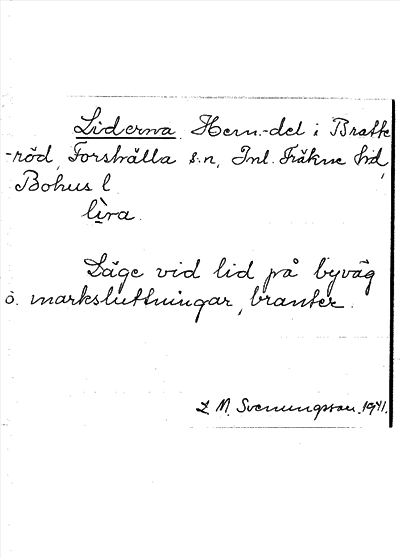 Liderna. Hem.-del i Bratte
-röd, Forshälla s:n, Inl. Fräkne hd,
Bohus l
lìra.
Läge vid lid på byväg
o. marksluttningar, branter.
L M. Svenungsson. 1941.